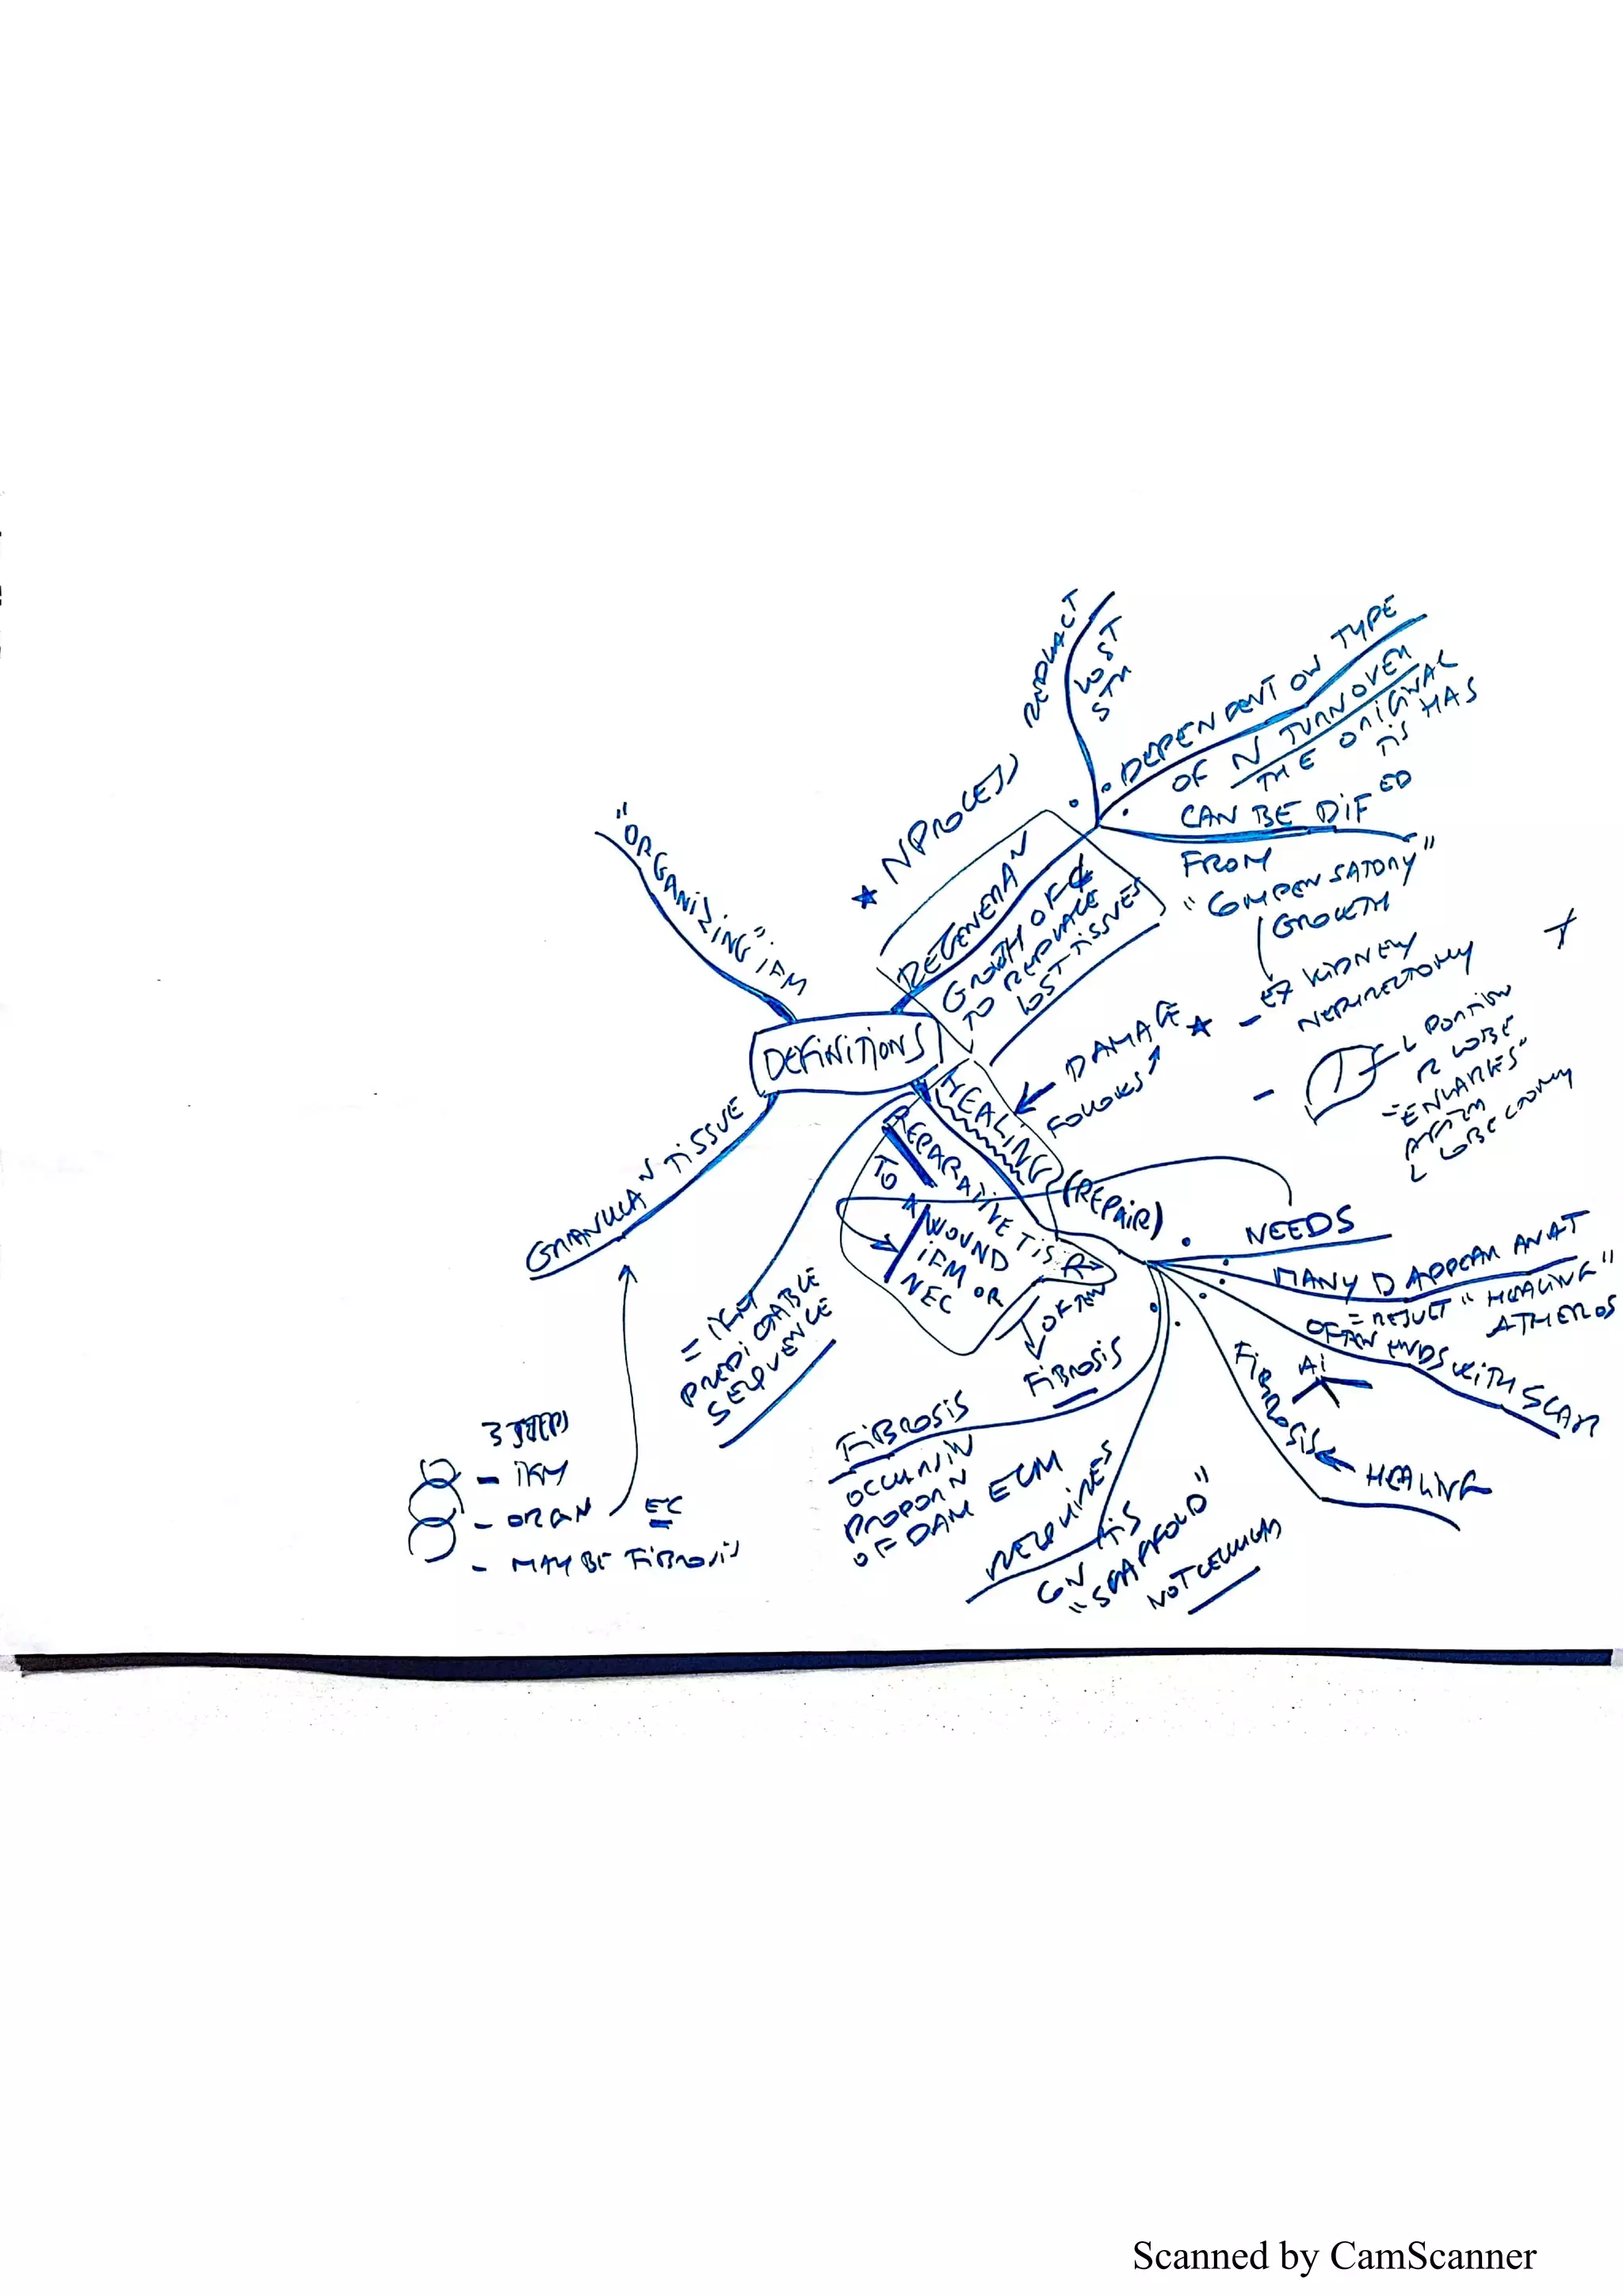 "ORGANIZING" iFM
DEFINITIONS
★ N PROCESS
LOST
DEPENDENT ON TYPE
OF N TURNOVER
THE ORIGINAL
TIS HAS
CAN BE DIF ED
FROM
"COMPENSATORY"
GROWTH
EX KIDNEY
NEPHRECTOMY
REGENERA N
GROWTH OF C
TO REPLACE
LOST TISSUES
DAMAGE ★
FOLLOWS
L PORTION
R LOBE
= ENLARGES"
AFTER
L LOBECTOMY
HEALING
(REPAIR)
REPARATIVE TIS R
TO A WOUND
iFM OR
NEC
OFTEN
FIBROSIS
NEEDS
MANY D APPEAR ANAT
= RESULT "HEALING"
ATHEROS
OFTEN ENDS WITH SCAR
FIBROSIS
HEALING
FIBROSIS
OCCURS IN
PROPOR N
OF DAM ECM
REQUIRES
CN TIS
"SCAFFOLD"
NOT CELLULAR
PREDICTABLE
SEQUENCE
GRANULA N TISSUE
3 STEPS
- iFM
- ORGA N EC
- MAY BE FIBROSIS
Scanned by CamScanner